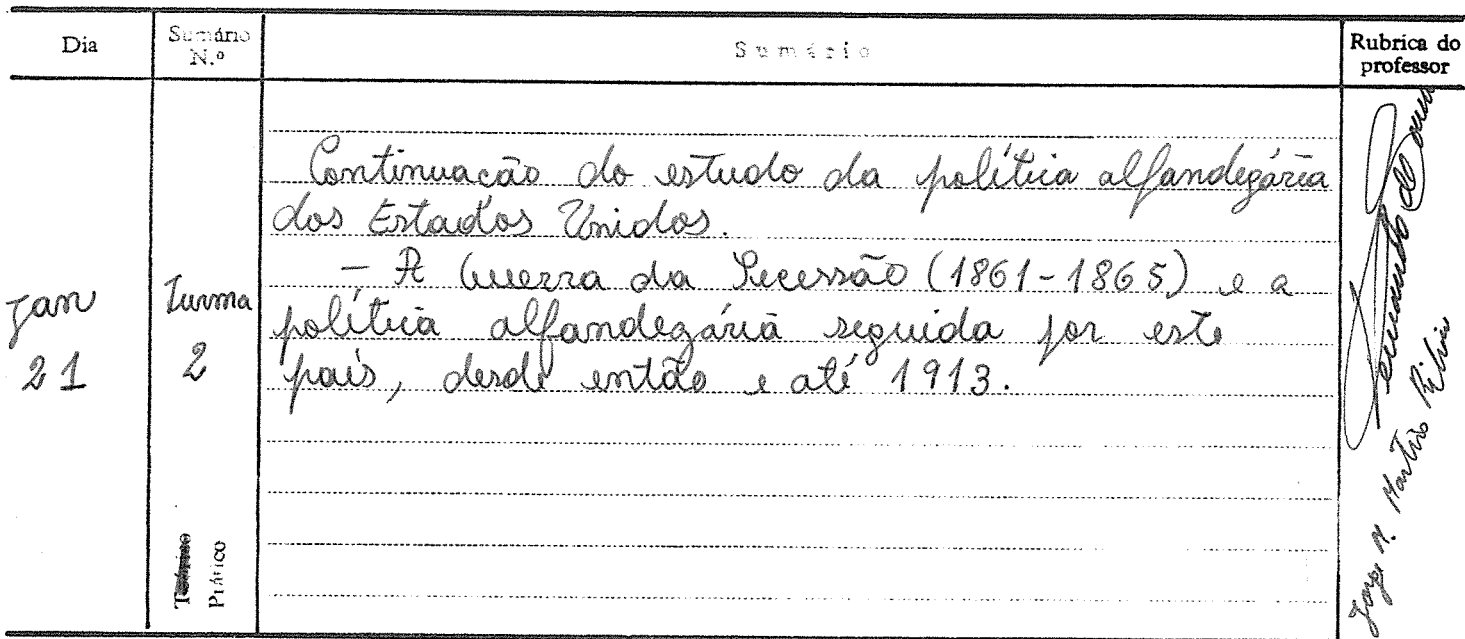 Dia
Sumário
N.º
Sumário
Rubrica do
professor
Jan
21
Turma
2
Prático
Continuacão do estudo da política alfandegária
dos Estados Unidos.
— A Guerra da Secessão (1861-1865) e a
política alfandegária seguida por este
país, desde então e até 1913.
Jorge M. Martins Ribeiro